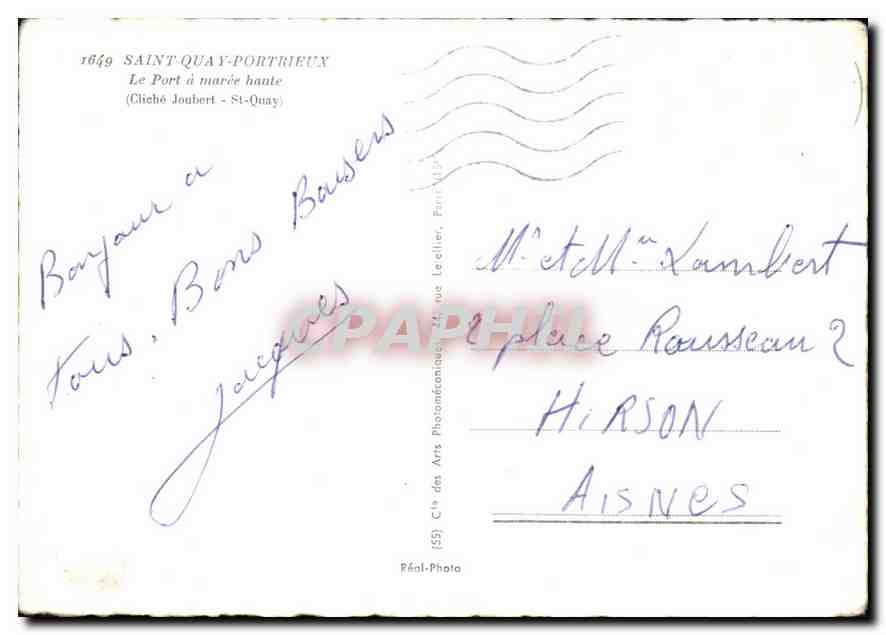 1649 SAINT-QUAY-PORTRIEUX
Le Port à marée haute
(Cliché Joubert - St-Quay)
Bonjour a
tous. Bons Baisers
Jacques
(55) Cie des Arts Photomécaniques, 44, rue Letellier, Paris (15e
Réal-Photo
Mr et Mme Lambert
2 place Rousseau 2
HIRSON
AISNES
CPAPHIL